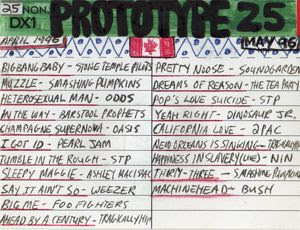 25 NON.
DX1
PROTOTYPE 25
APRIL 1996
MAY 96
BIG BANG BABY - STONE TEMPLE PILOTS
MUZZLE - SMASHING PUMPKINS
HETEROSEXUAL MAN - ODDS
IN THE WAY - BARSTOOL PROPHETS
CHAMPAGNE SUPERNOVA - OASIS
I GOT ID - PEARL JAM
TUMBLE IN THE ROUGH - STP
SLEEPY MAGGIE - ASHLEY MACISAAC
SAY IT AIN'T SO - WEEZER
BIG ME - FOO FIGHTERS
AHEAD BY A CENTURY - TRAGICALLY HIP
PRETTY NOOSE - SOUNDGARDEN
DREAMS OF REASON - THE TEA PARTY
POP'S LOVE SUICIDE - STP
YEAH RIGHT - DINOSAUR JR.
CALIFORNIA LOVE - 2PAC
NEW ORLEANS IS SINKING - TRAGICALLY HIP
HAPPINESS IN SLAVERY (LIVE) - NIN
THIRTY-THREE - SMASHING PUMPKINS
MACHINEHEAD - BUSH